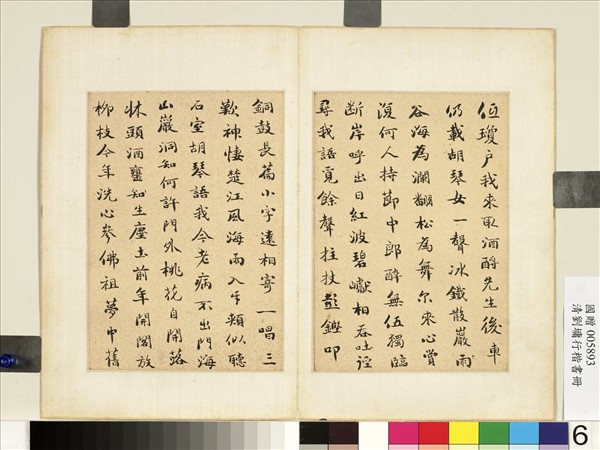 低瓊戶我來取酒酹先生後車
仍載胡琴女一聲冰鐵散巖雨
谷海為瀾翻松為舞尔來心賞
復何人持節中郎醉無伍獨臨
斷岸呼出日紅波碧巘相吞吐逕
尋我語覓餘聲拄杖彭鏗叩
銅鼓長篇小字遠相寄一唱三
歎神悽楚江風海雨入牙頰似聽
石室胡琴語我今老病不出門海
山巖洞知何許門外桃花自開落
牀頭酒甕知生塵土前年開閣放
柳枝今年洗心參佛祖夢中舊
國贈 005893
清劉墉行楷書冊
6